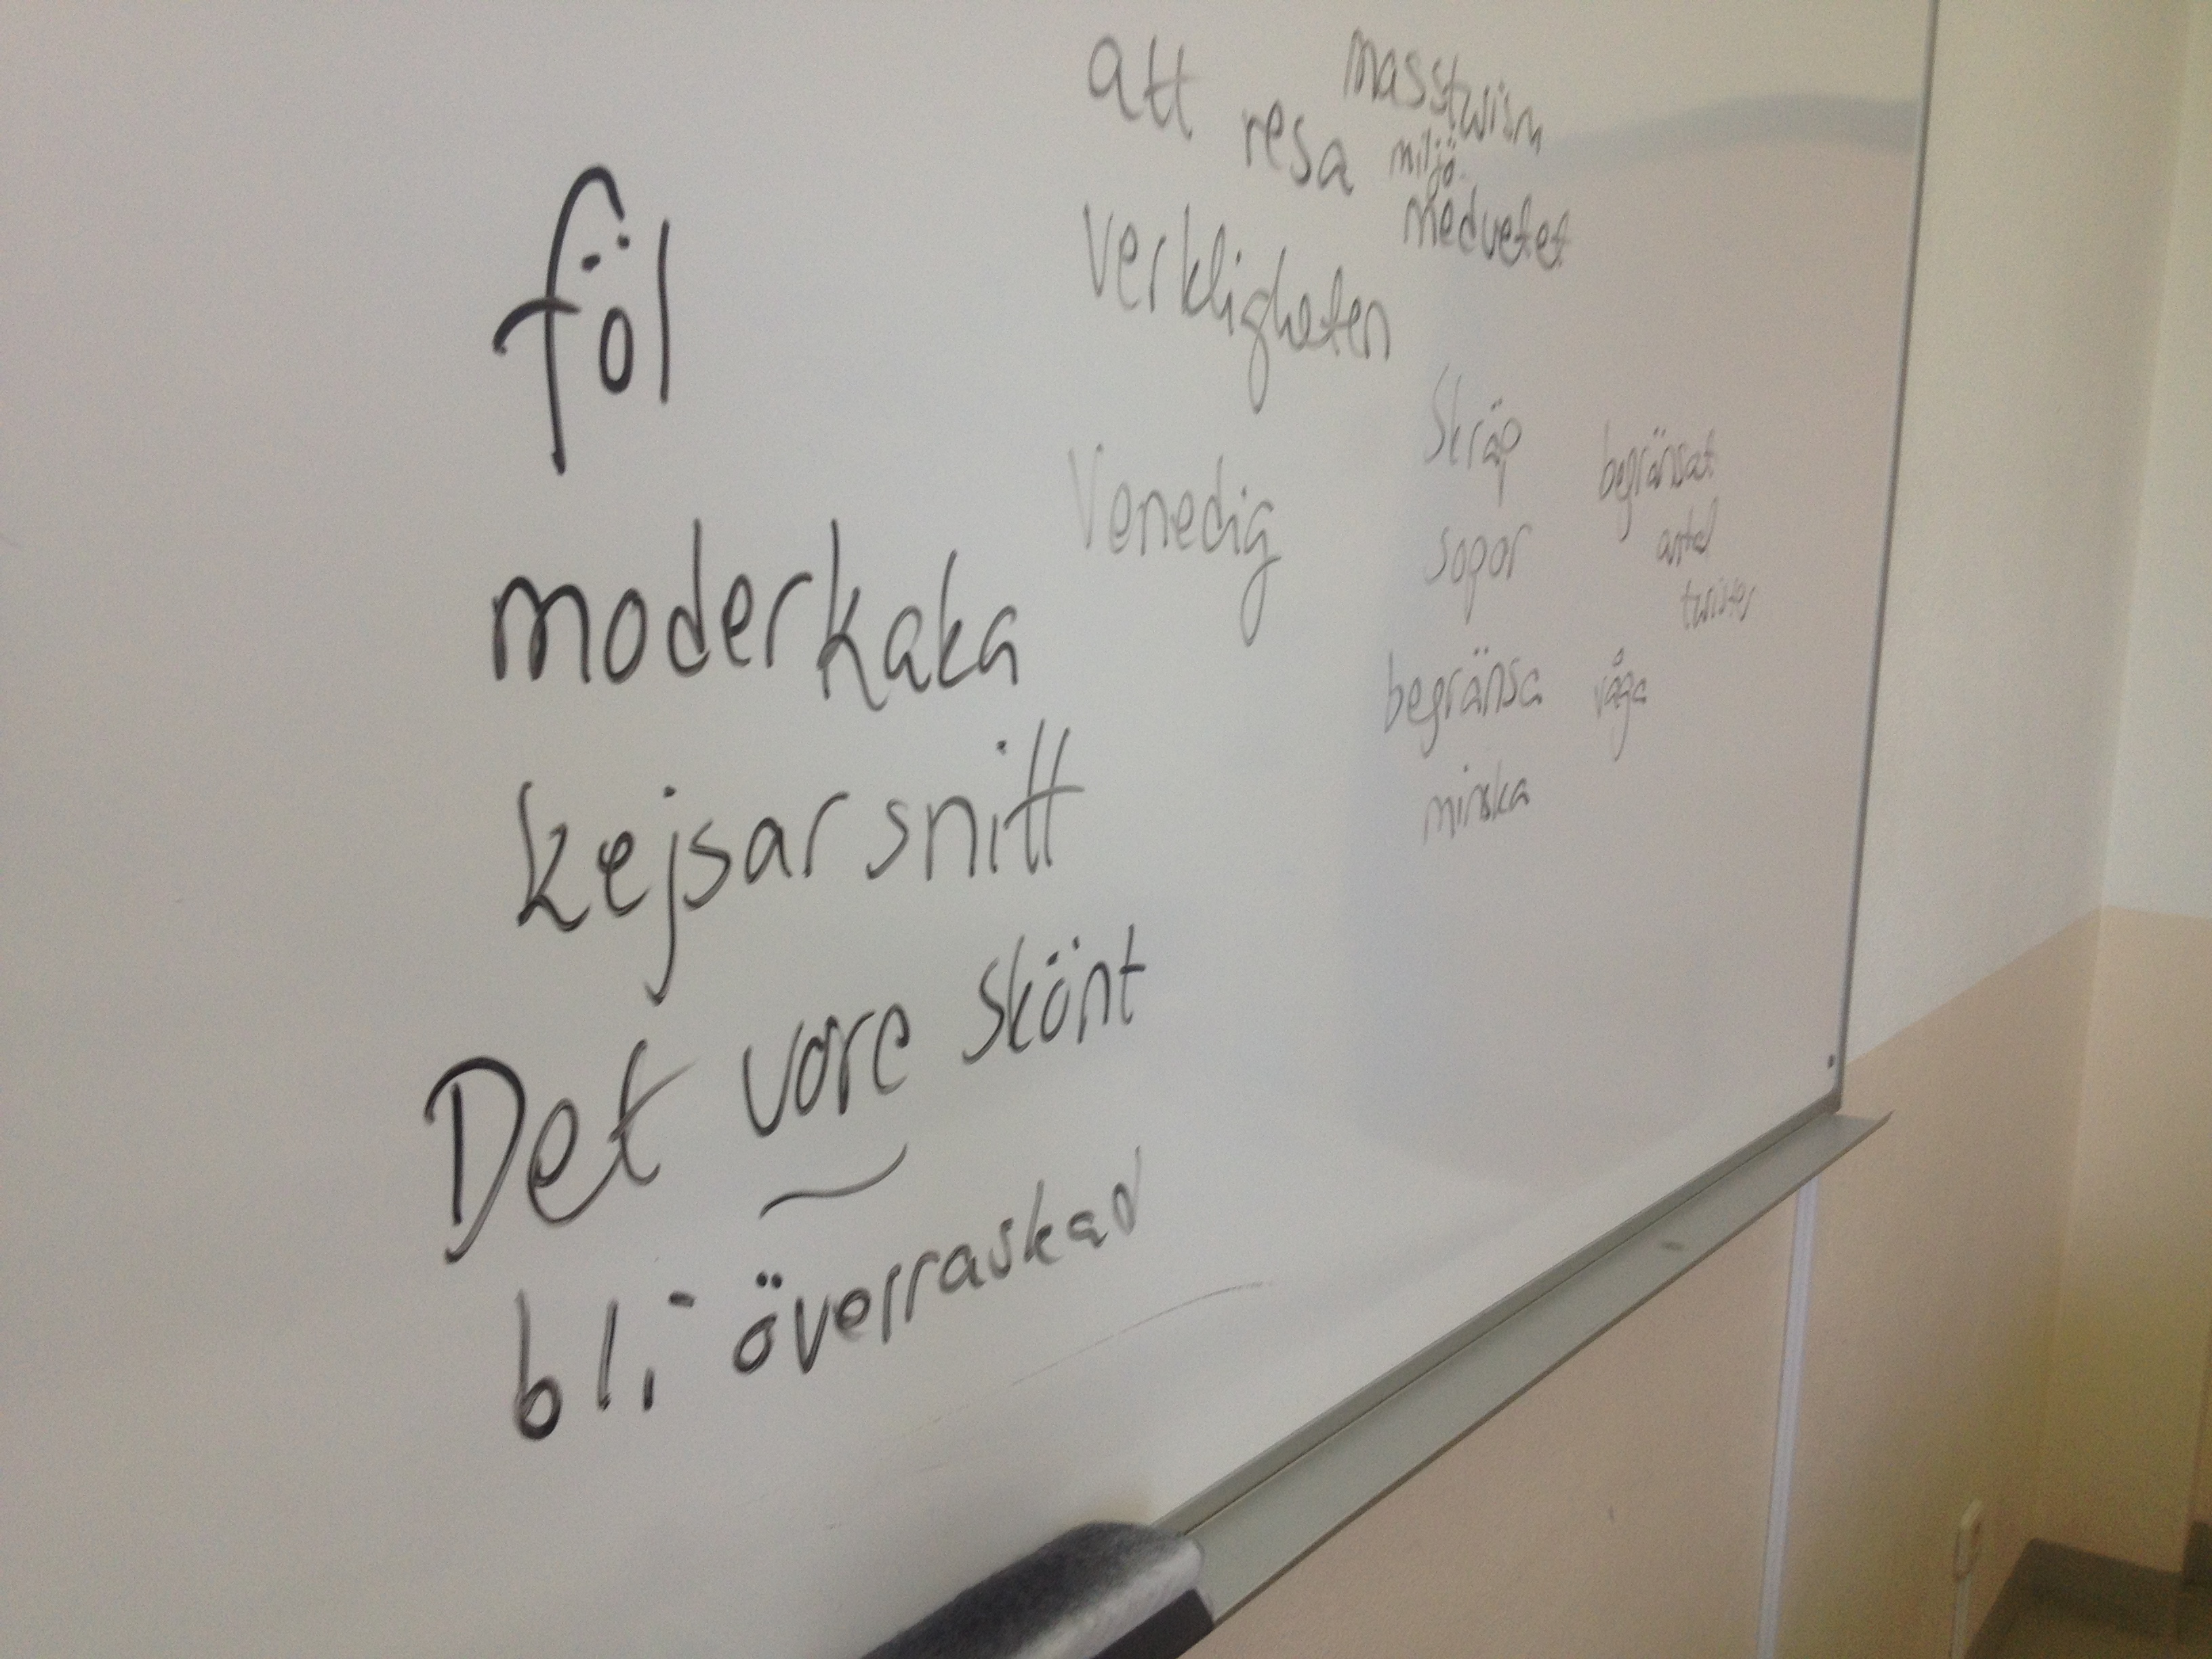 föl
moderkaka
kejsarsnitt
Det vore skönt
bli överraskad
att resa
verkligheten
Venedig
massturism
miljö-
medvetet
Skräp
sopor
begränsa
minska
begränsat
antal
turister
våga